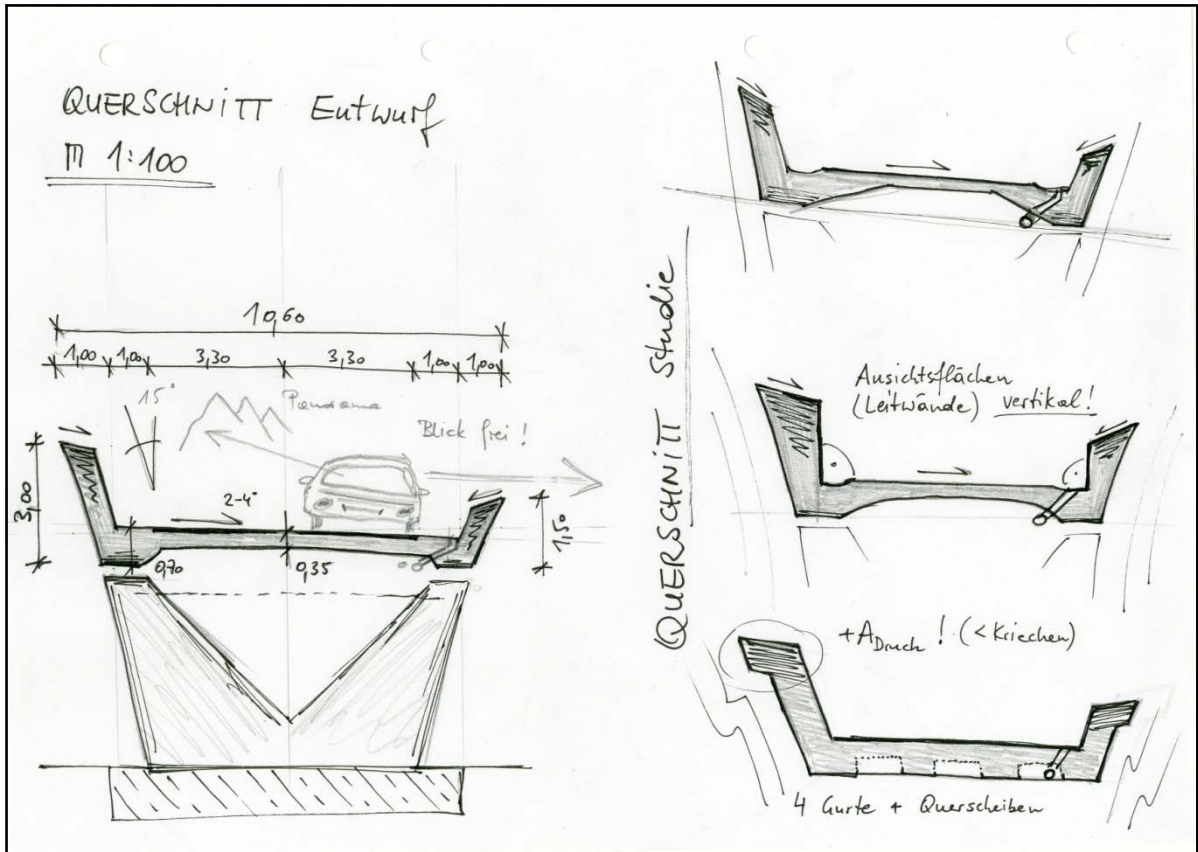 QUERSCHNITT Entwurf
M 1:100
10,60
1,00 1,00 3,30 3,30 1,00 1,00
15°
Panorama
Blick frei !
3,00
2-4°
1,50
0,70
0,35
QUERSCHNITT Studie
Ansichtsflächen
(Leitwände) vertikal!
+ADruck ! (< Kriechen)
4 Gurte + Querscheiben